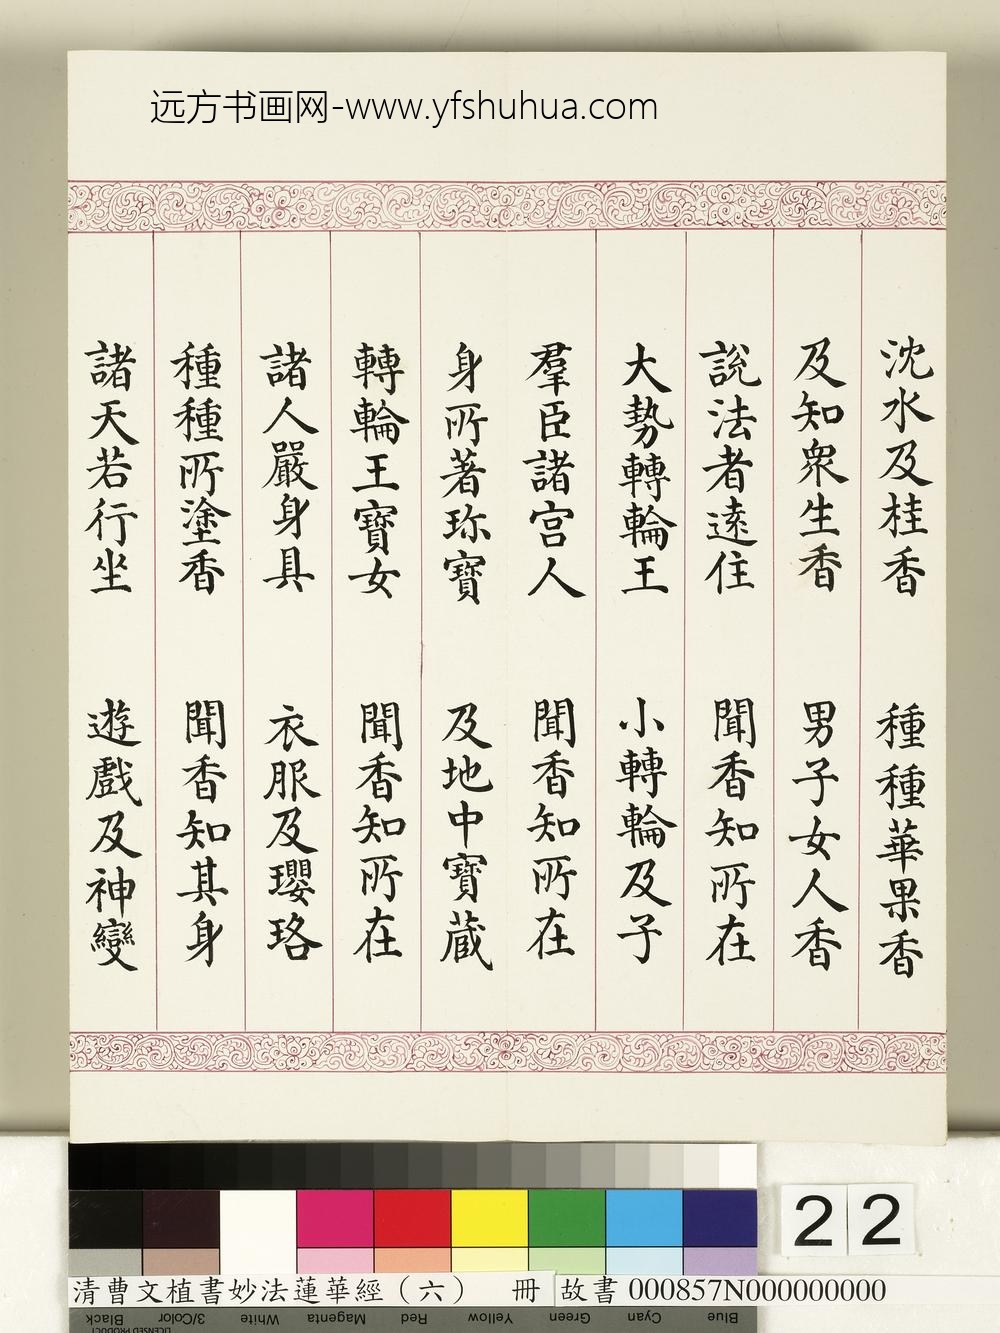 远方书画网-www.yfshuhua.com
沈水及桂香 種種華果香
及知衆生香 男子女人香
說法者遠住 聞香知所在
大勢轉輪王 小轉輪及子
羣臣諸宮人 聞香知所在
身所著珎寶 及地中寶蔵
轉輪王寶女 聞香知所在
諸人嚴身具 衣服及瓔珞
種種所塗香 聞香知其身
諸天若行坐 遊戲及神變
22
清曹文植書妙法蓮華經（六） 冊 故書 000857N000000000
Black 3/Color White Magenta Red Yellow Green Cyan Blue
LICENSED PRODUCT